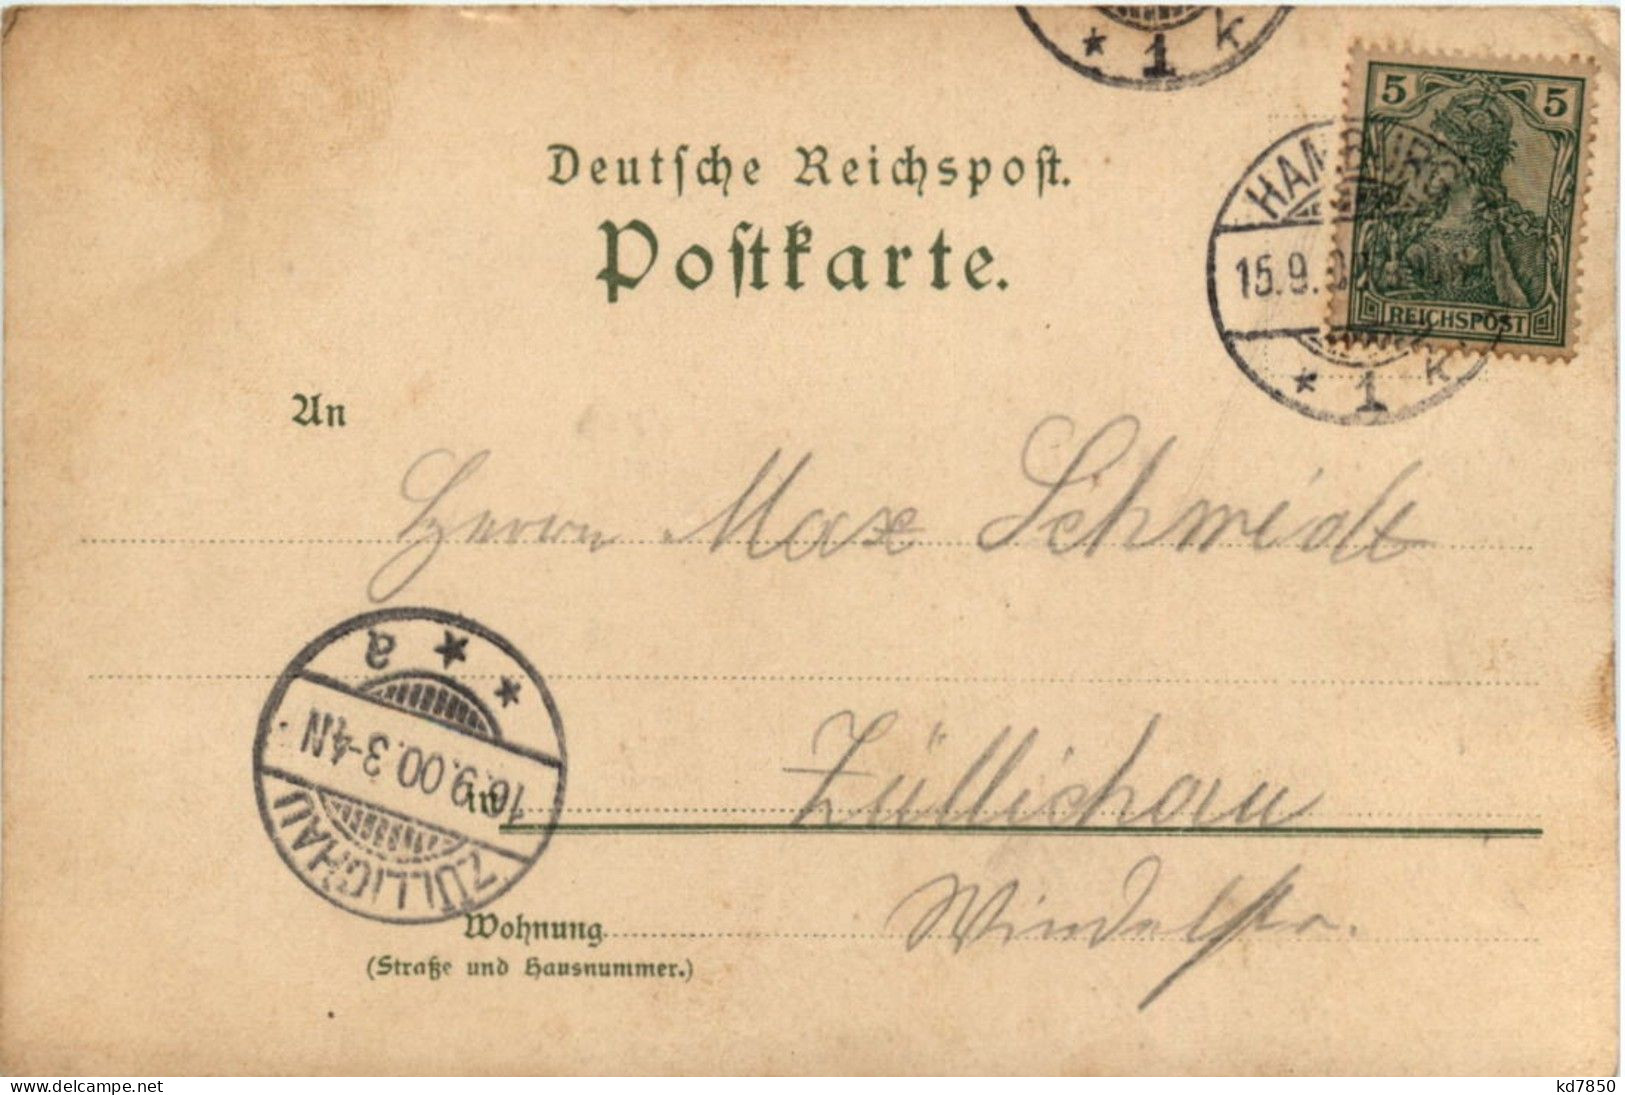 * 1 k
5 5
HAMBURG
15.9.00
REICHSPOST
* 1 k
Deutsche Reichspost.
Postkarte.
An
Herrn Max Schmidt
a * *
16.9.00.3-4N
ZÜLLICHAU
in Züllichau
Wohnung Windelstr.
(Straße und Hausnummer.)
www.delcampe.net
kd7850